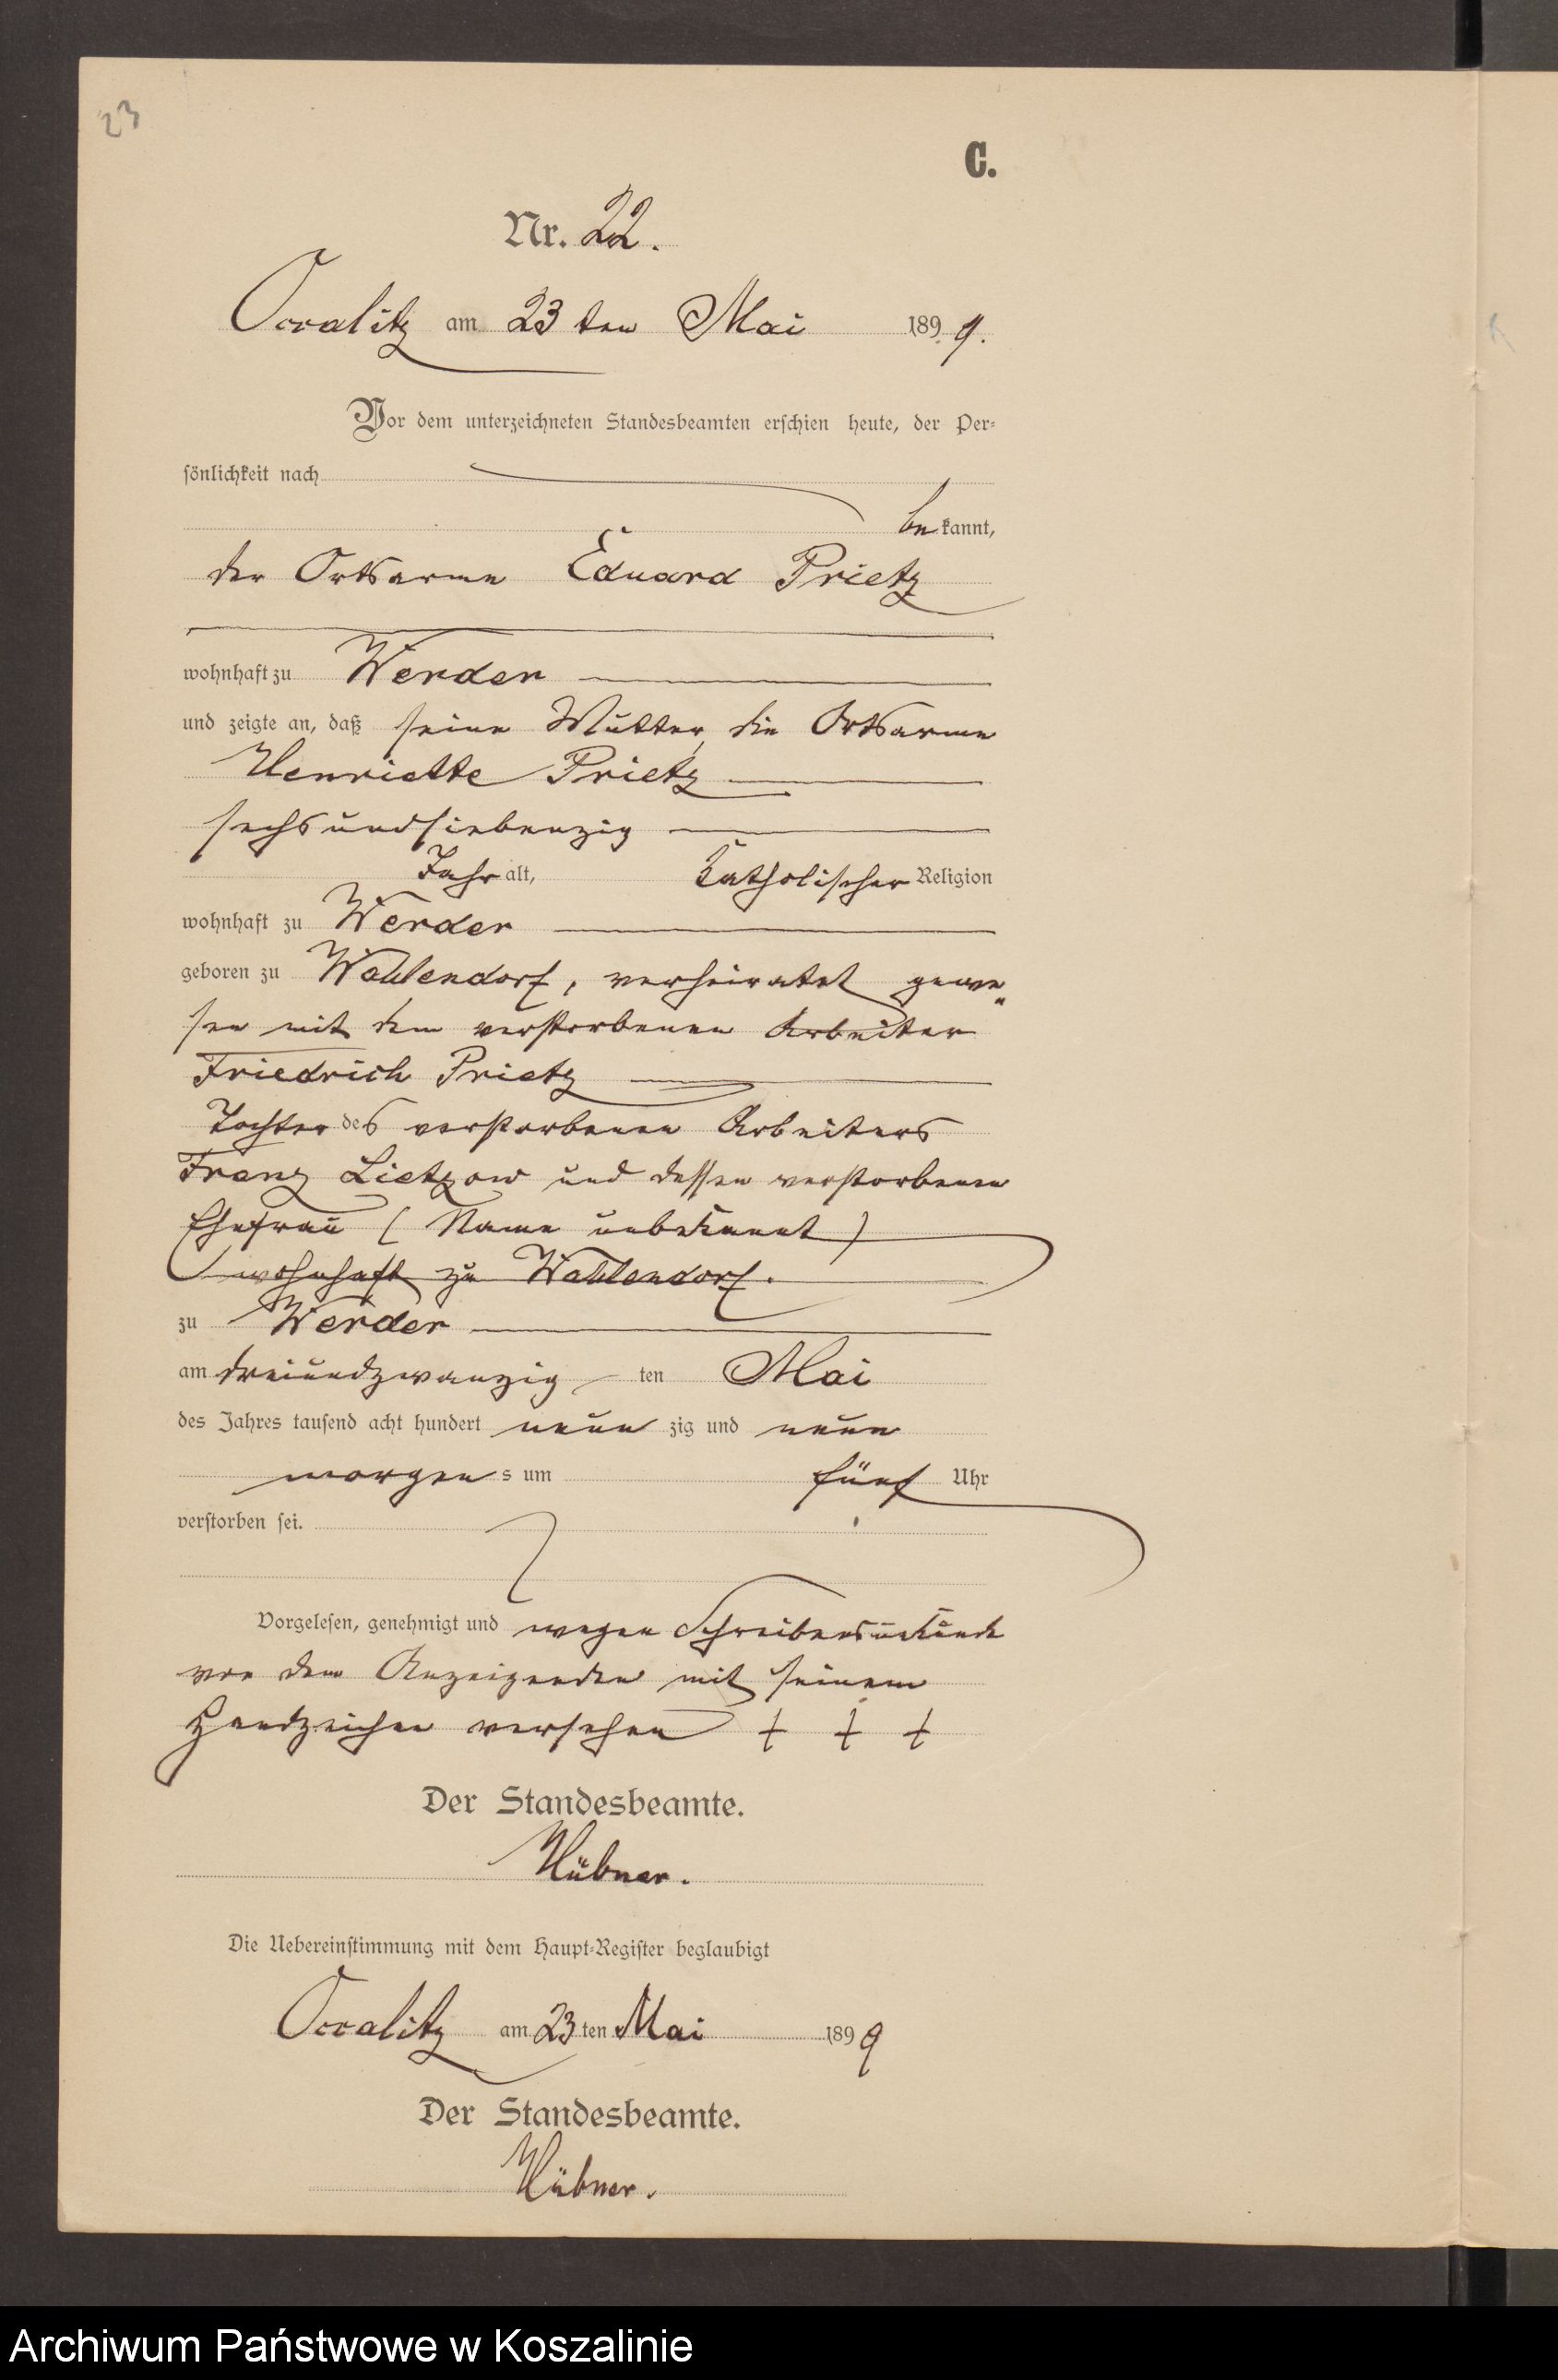 23
C.
Nr. 22.
Occalitz am 23 ten Mai 1899.
Vor dem unterzeichneten Standesbeamten erschien heute, der Per-
sönlichkeit nach
bekannt,
der Ortsarme Eduard Prietz
wohnhaft zu Werder
und zeigte an, daß seine Mutter, die Ortsarme
Henriette Prietz
sechsundsiebenzig
Jahr alt, katholischer Religion
wohnhaft zu Werder
geboren zu Wahlendorf, verheiratet gewe-
sen mit dem verstorbenen Arbeiter
Friedrich Prietz
Tochter des verstorbenen Arbeiters
Franz Lietzow und dessen verstorbenen
Ehefrau (Name unbekannt)
wohnhaft zu Wahlendorf.
zu Werder
am dreiundzwanzig ten Mai
des Jahres tausend acht hundert neunzig und neun
morgens um fünf Uhr
verstorben sei.
Vorgelesen, genehmigt und wegen Schreibensunkunde
von dem Anzeigenden mit seinem
Handzeichen versehen + + +
Der Standesbeamte.
Hübner.
Die Uebereinstimmung mit dem Haupt-Register beglaubigt
Occalitz am 23 ten Mai 1899
Der Standesbeamte.
Hübner.
Archiwum Państwowe w Koszalinie